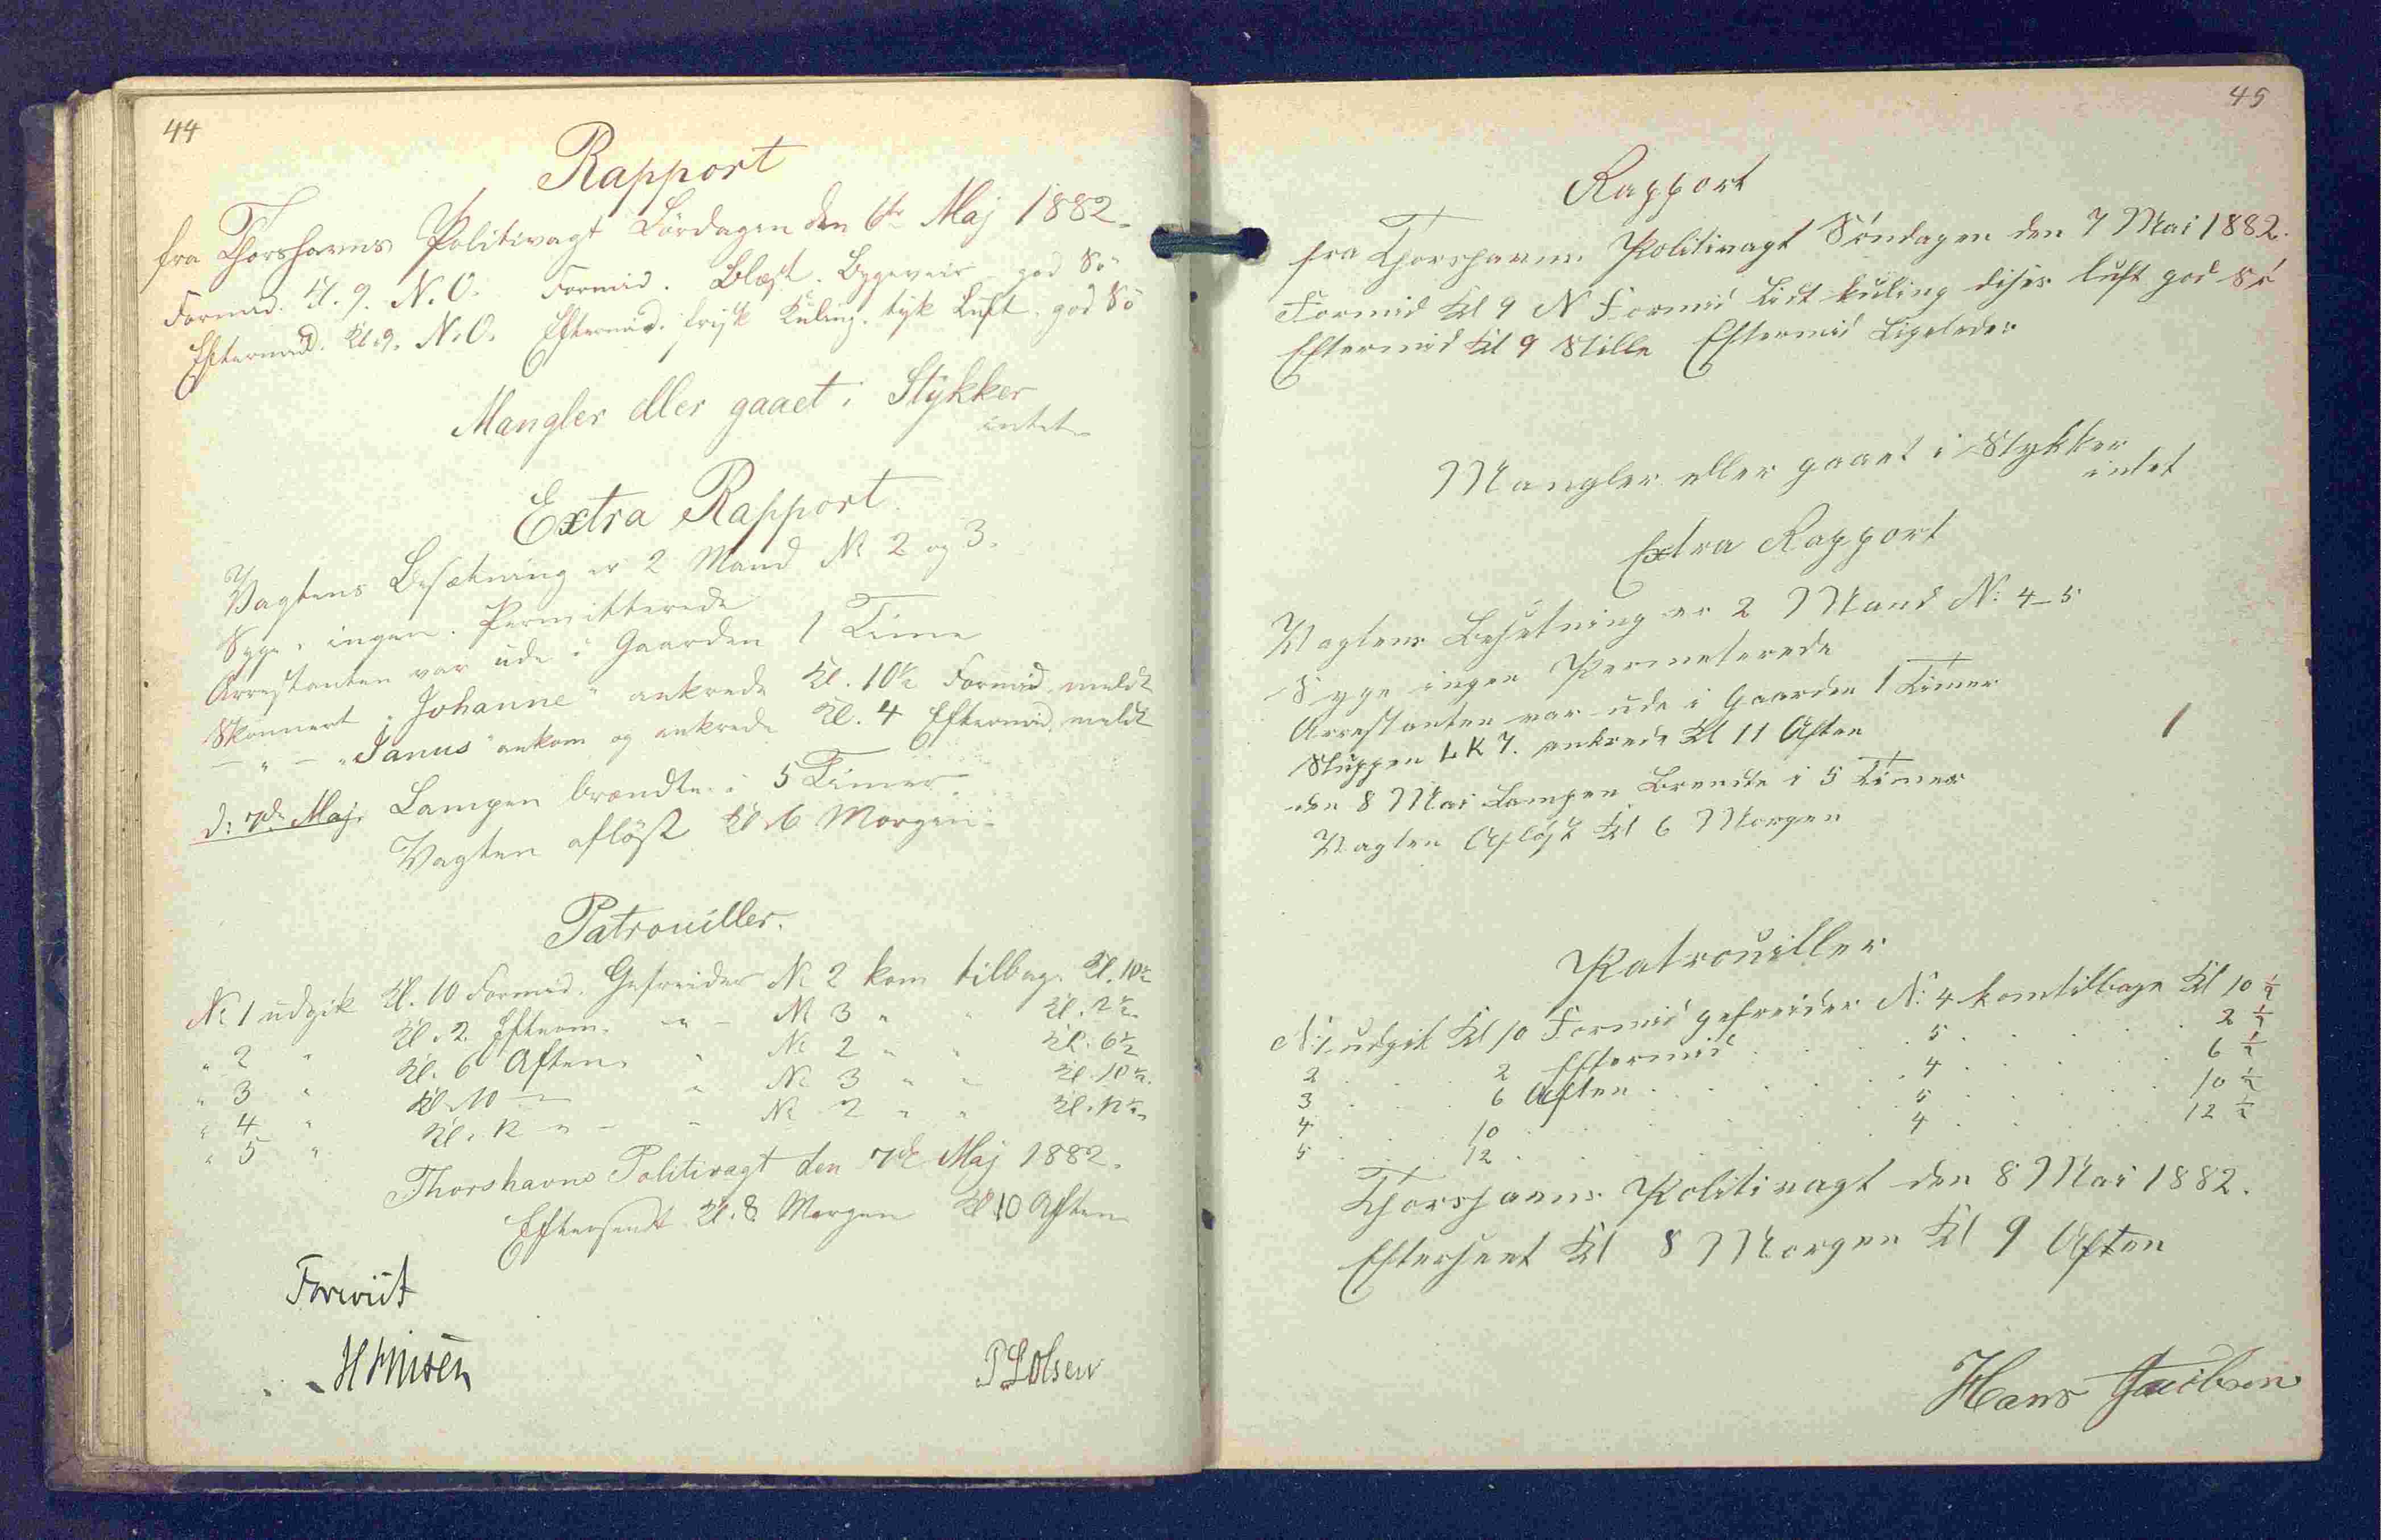 44
Rapport
fra Thorshavns Politivagt Lørdagen den 6te Maj 1882.
Formid. Kl. 9. N.O. Formid. Blæst. Bygeveir god Sö
Eftermid. Kl. 9. N.O. Eftermid. frisk Kuling. tyk Luft. god Sö
Mangler eller gaaet i Stykker
intet
Extra Rapport.
Vagtens Besætning er 2 Mand № 2 og 3.
Syge ingen. Permitterede
Arrestanten var ude i Gaarden 1 Time
Skonnert "Johanne" ankrede Kl. 10½ Formid. meldt
— " — "Janus" ankom og ankrede Kl. 4 Eftermid. meldt
d: 7de Maj. Lampen brændte i 5 Timer.
Vagten aflöst Kl. 6 Morgen.
Patrouiller.
№ 1 udgik Kl. 10 Formid. Gefreider № 2 kom tilbage Kl. 10½
" 2 " Kl. 2 Efterm. — " — № 3 " " Kl. 2½
" 3 " Kl. 6 Aften " № 2 " " Kl. 6½
" 4 " Kl. 10 — " № 3 " " Kl. 10½
" 5 " Kl. 12 " — " № 2 " " Kl. 12½
Thorshavns Politivagt den 7de Maj 1882.
Eftersendt Kl. 8 Morgen Kl 10 Aften
Foreviist
P L Olsen
45
Rapport
fra Thorshavns Politivagt Söndagen den 7 Mai 1882.
Formid Kl 9 N Formid Lidt kuling diset luft god Sö
Eftermid Kl 9 Stille Eftermid Ligeledes
Mangler eller gaaet i Stykker
intet
Extra Rapport
Vagtens Besetning er 2 Mand N: 4-5
Syge ingen Permeterede
Arrestanten var ude i Gaarden 1 Timer
Sluppen L K 7. ankrede Kl 11 Aften
den 8 Mai Lampen Brendte i 5 Timer
Vagten Aflöst Kl 6 Morgen
Patrouiller
N: 1 udgik Kl 10 Formid gefreider N: 4 kom tilbage Kl 10 ½
2 . . . 2 Eftermid . . . 5 . . . 2 ½
3 . . . 6 Aften . . . 4 . . . 6 ½
4 . . . 10 . . . 5 . . . 10 ½
5 . . . 12 . . . 4 . . . 12 ½
Thorshavns Politivagt den 8 Mai 1882.
Eftersent Kl 8 Morgen Kl 9 Aften
Hans Jacobsen